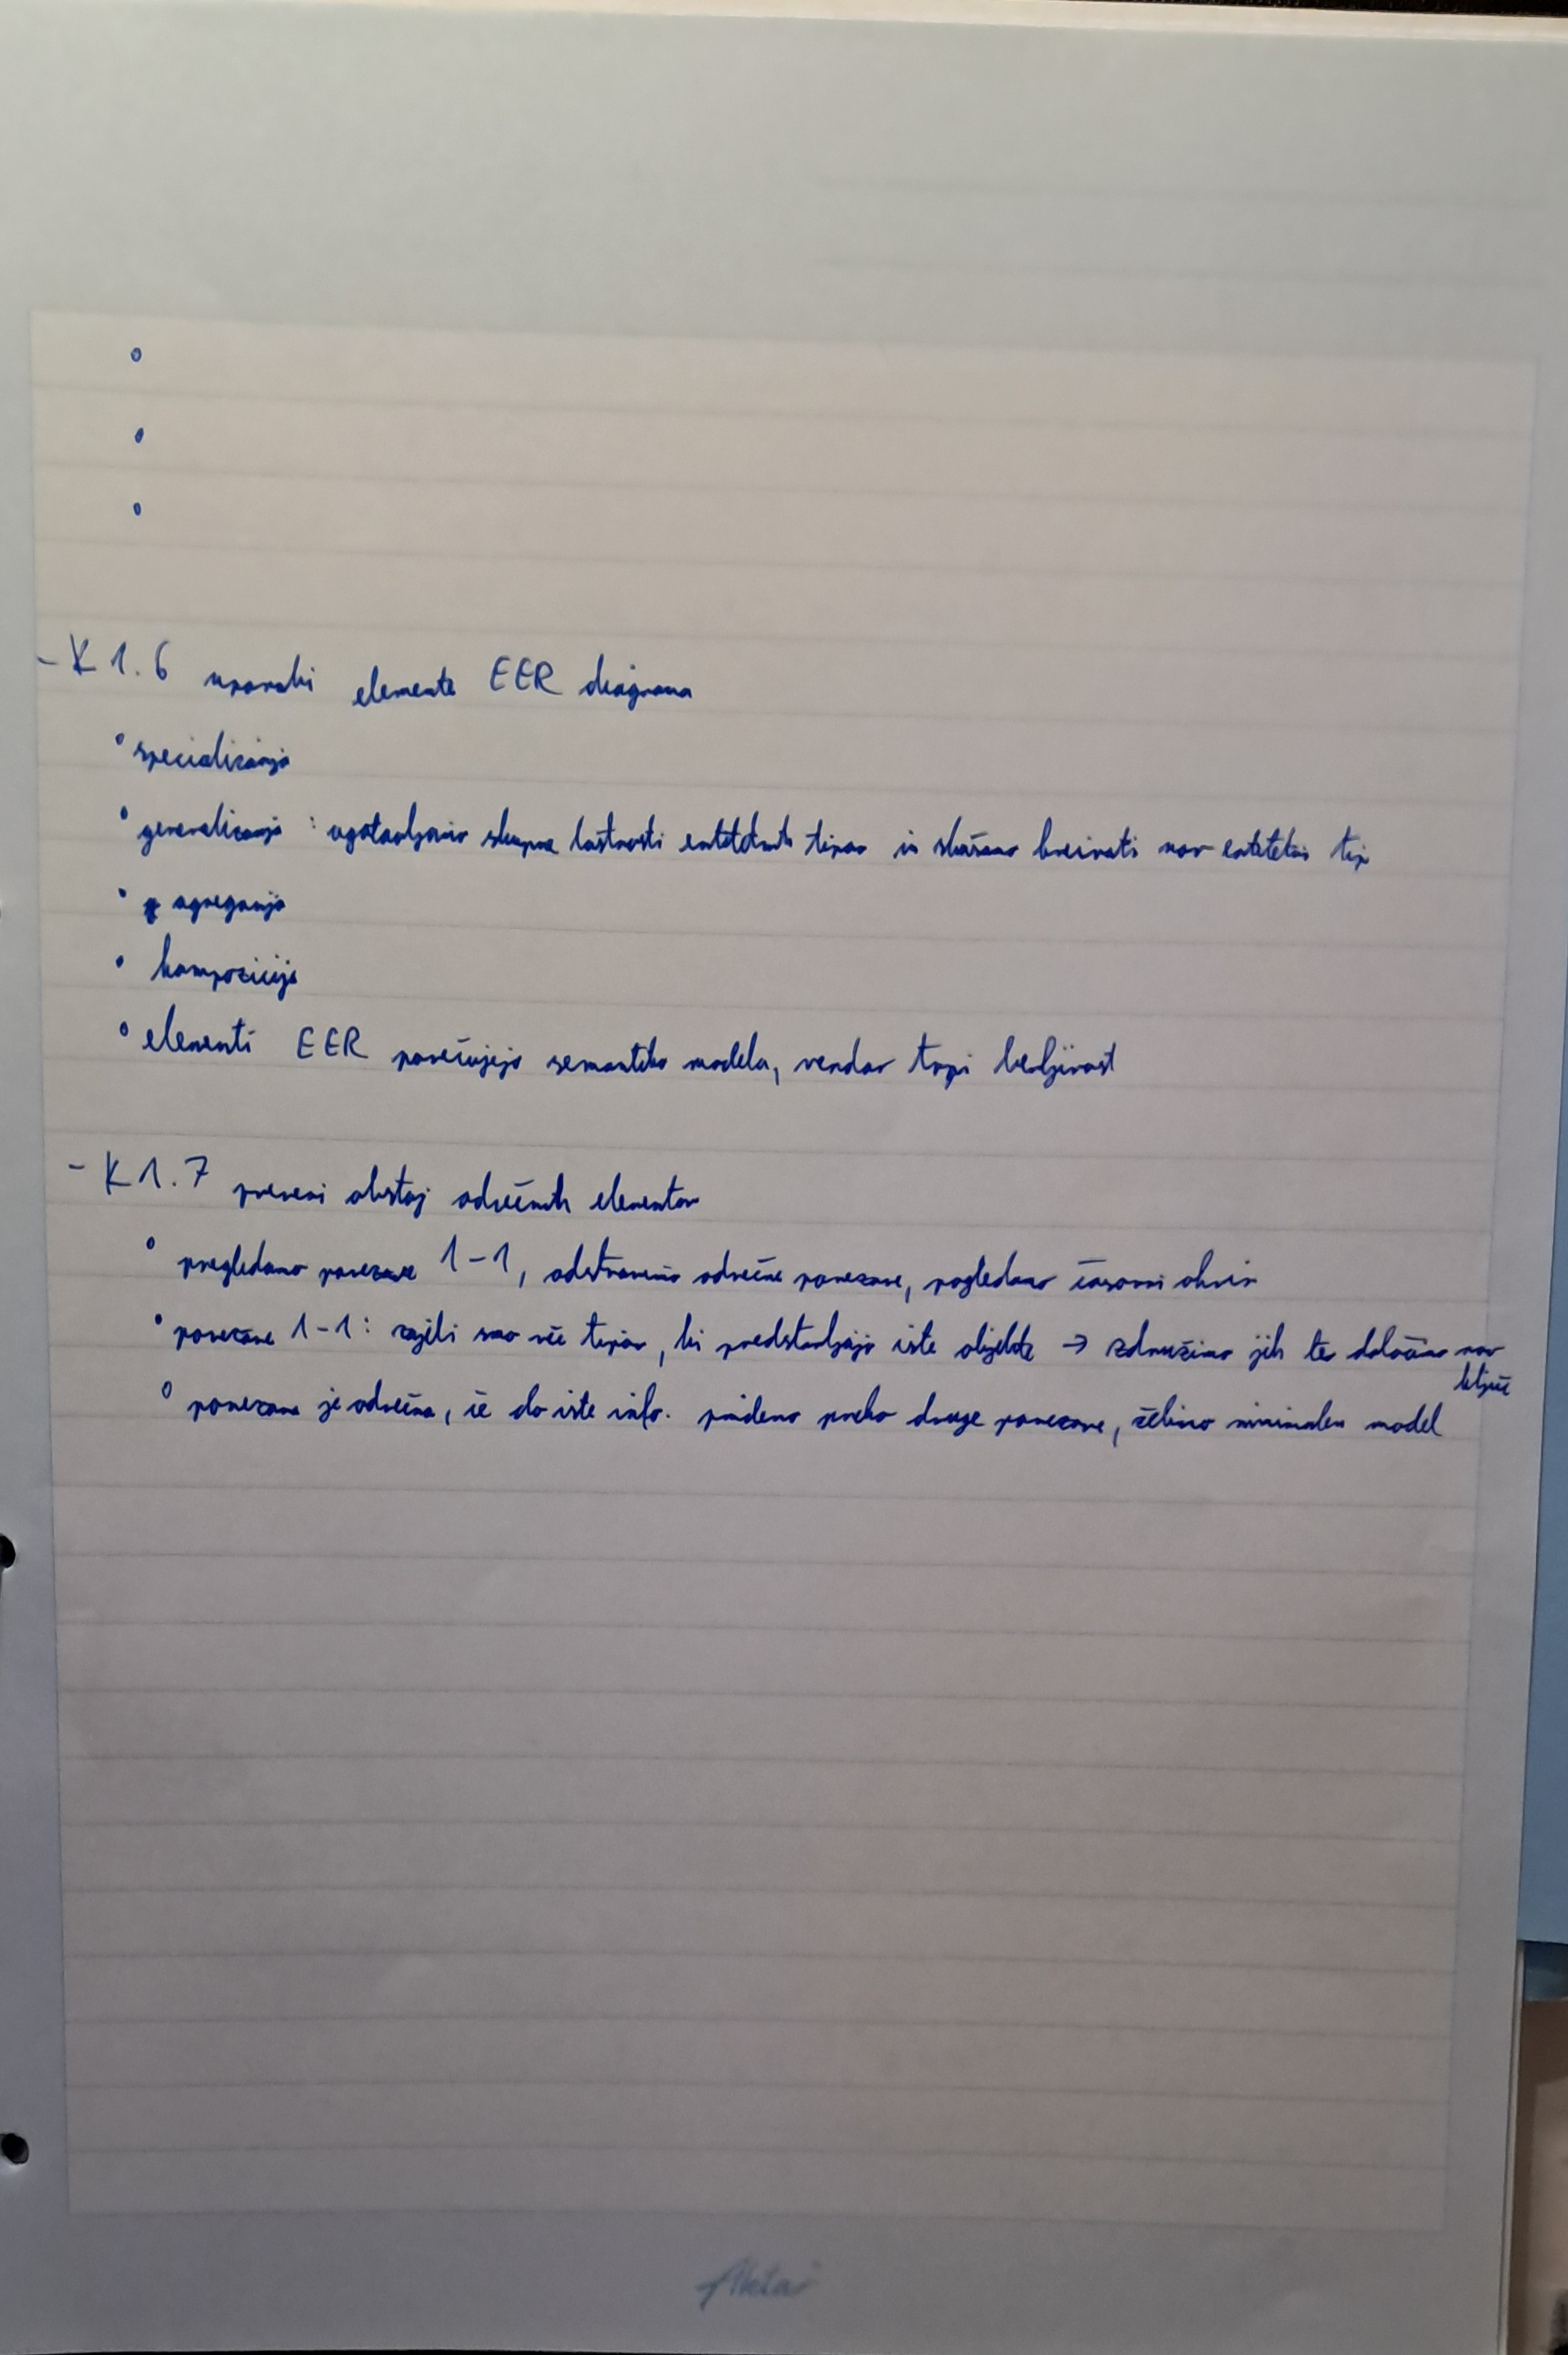 - K 1.6 uporabi elemente EER diagrama
° specializacija
° generalizacija : ugotavljamo skupne lastnosti entitetnih tipov in skušamo kreirati nov entitetni tip
° agregacija
° kompozicija
° elementi EER povečujejo semantiko modela, vendar trpi berljivost
- K 1.7 preveri obstoj odvečnih elementov
° pregledamo povezave 1-1, odstranimo odvečne povezave, pogledamo časovni okvir
° povezave 1-1: zajeli smo več tipov, ki predstavljajo iste objekte → združimo jih ter določimo nov
ključ
° povezava je odvečna, če do iste info. pridemo preko druge povezave, želimo minimalen model